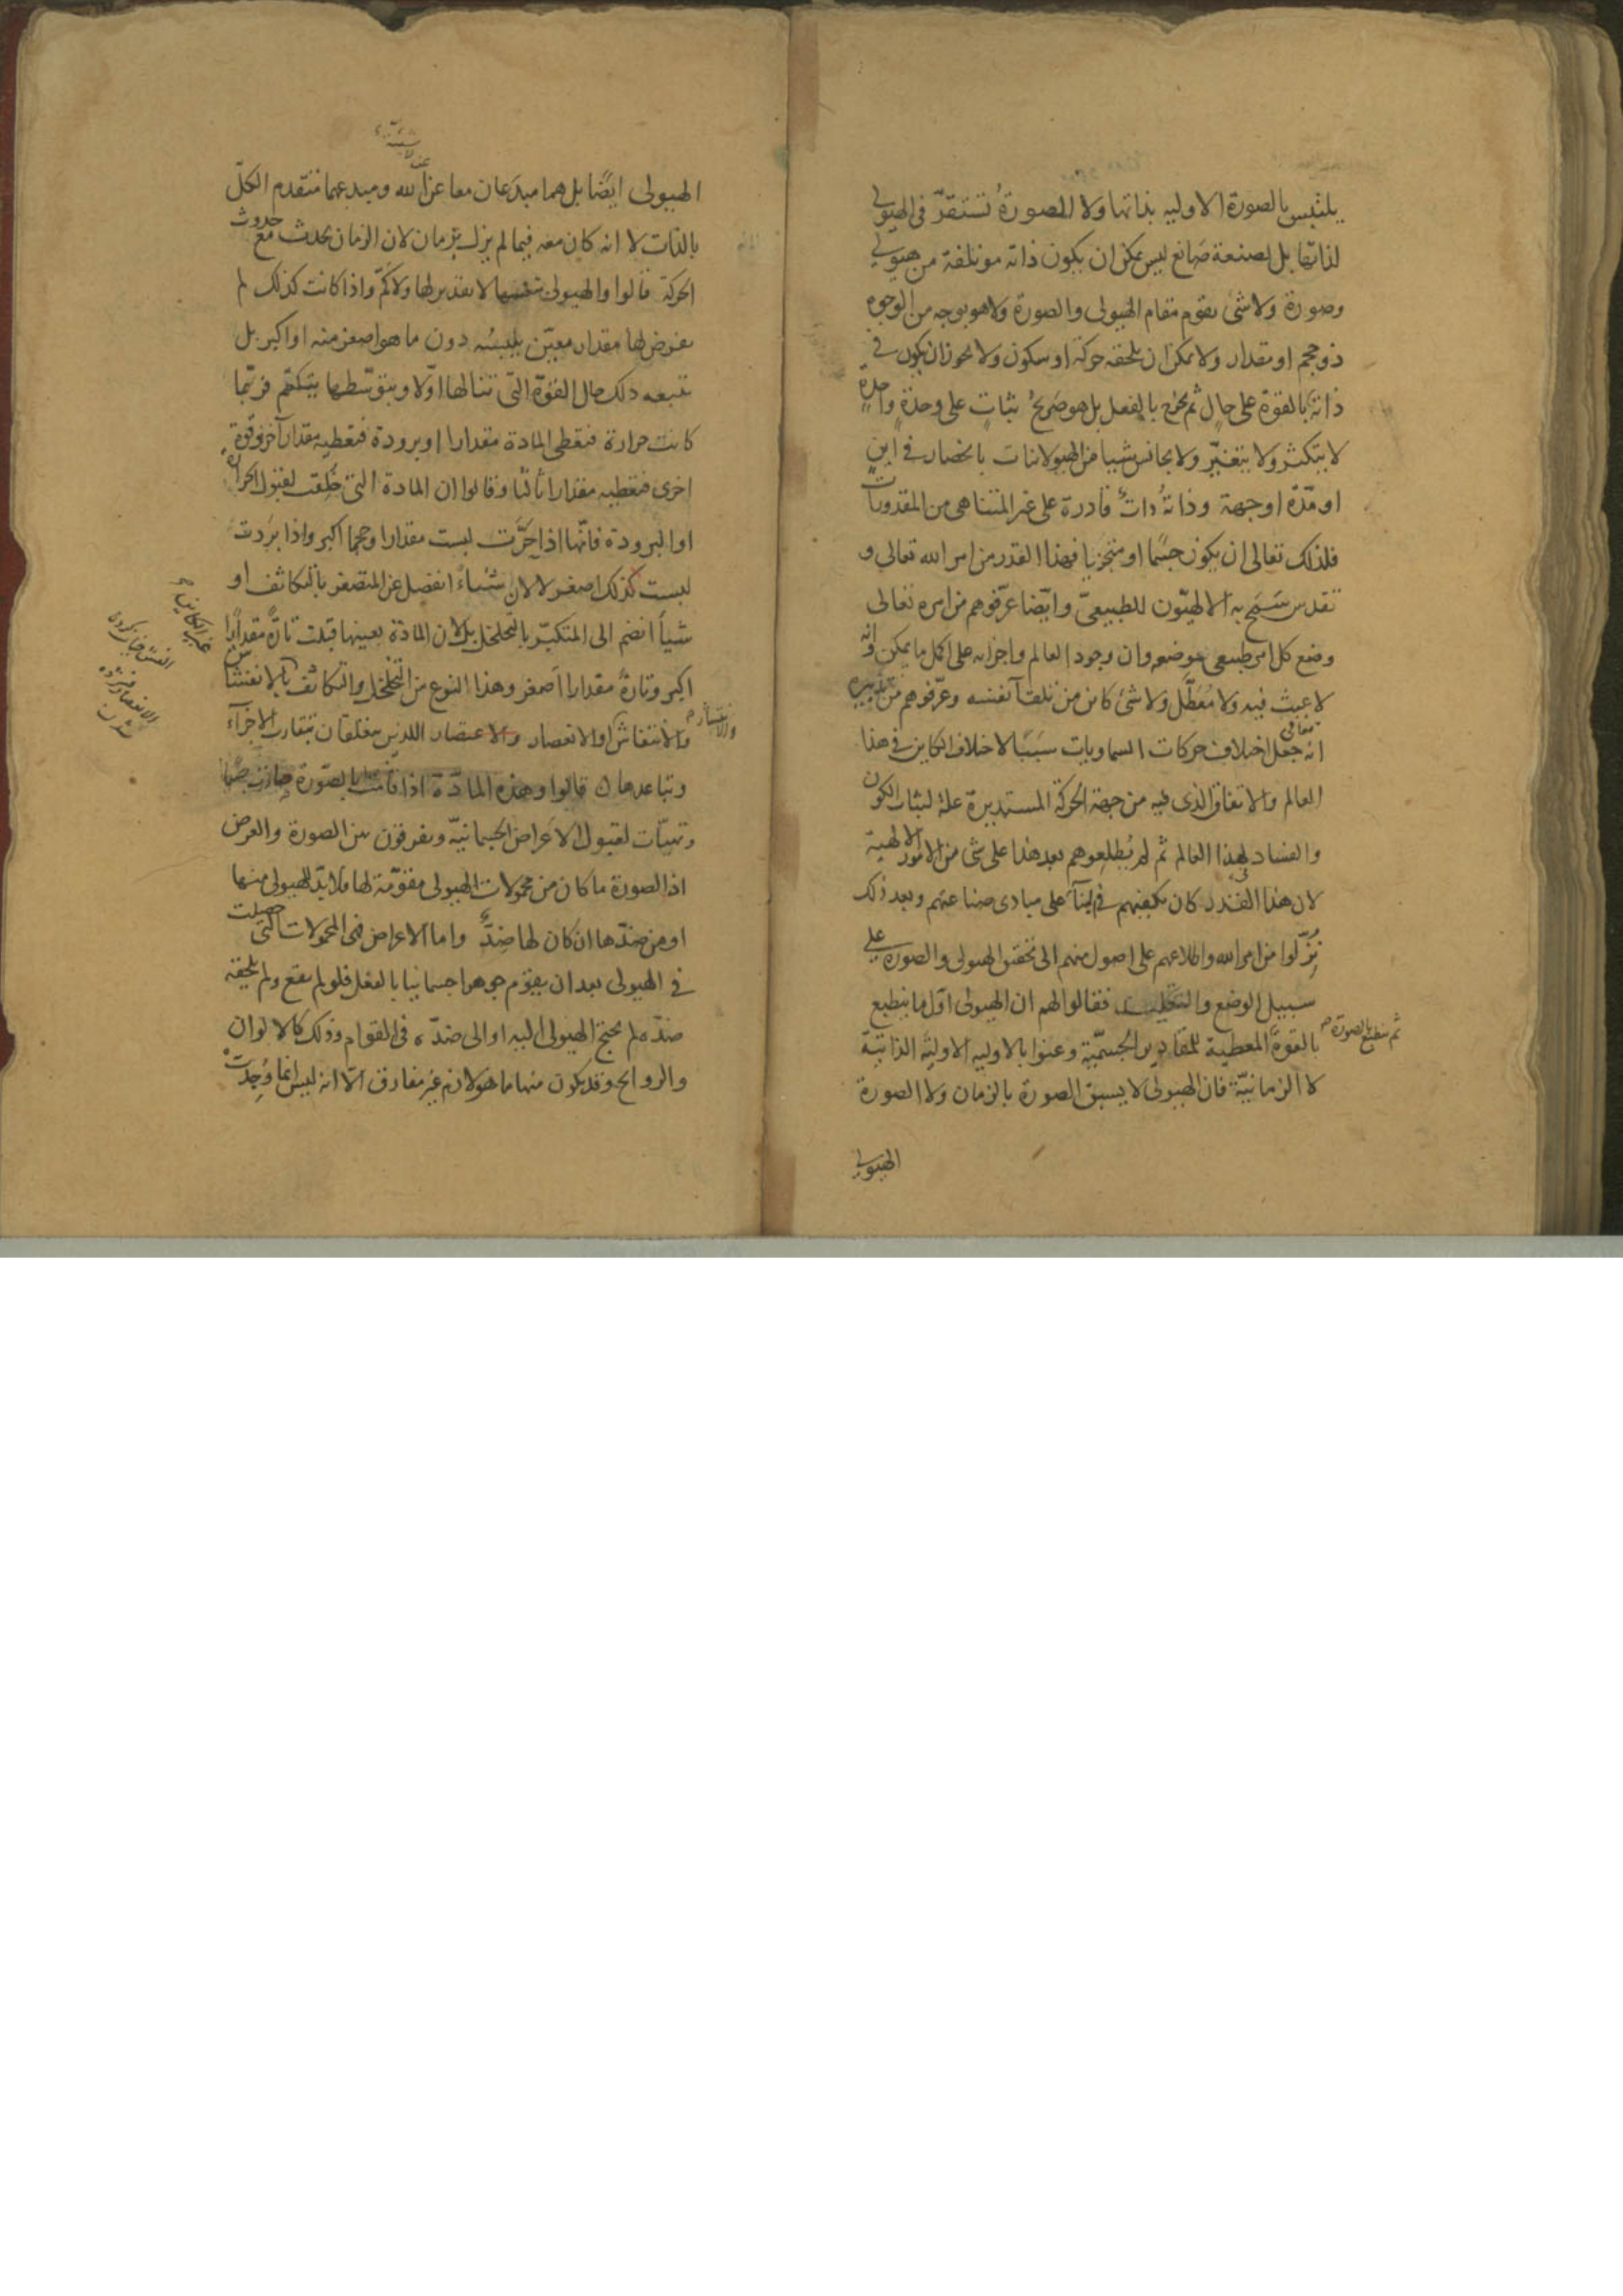 يلتبس بالصورة الاوليه بذاتها ولا الصورةُ تستقرّ فى الهيولى
لذاتها بل لصنعة صانع ليس يمكن ان يكون ذاته مؤتلفة من هيولى
وصورة ولا شى يقوم مقام الهيولى والصورة ولا هو بوجه من الوجوه
ذو حجم او مقدار ولا يمكن ان يلحقه حركة او سكون ولا يجوز ان يكون فى
ذاته بالقوة على حالٍ ثم يخرج بالفعل بل هو صريحُ ثباتٍ على وحدةٍ واحدةٍ
لا يتكثر ولا يتغيّر ولا يجانس شيا من الهيولانيات بانحصار فى اينٍ
او مدّة او جهة وذاتهُ ذاتٌ قادرة على غير المتناهى من المقدورات
فلذلك تعالى ان يكون جسًما او متجزيا فهذا القدر من امر الله تعالى و
تقدس سَمَح به الالهيّون للطبيعىّ وايضا عرّفوهم من امره تعالى
وضع كل امر طبيعى موضعه وان وجود العالم واجزائه على اكمل ما يمكن وانه
لا عبث فيه ولا مُعَطَّل ولا شئ كاين من تلقآ نفسه وعرّفوهم من تدبيره
تعالى
انه جعل اختلاف حركات السماويات سَبَبًا لاختلاف الكاين فى هذا
العالم والاتفاق الذى فيه من جهة الحركة المستديرة علة لثبات الكون
والفساد لهذا العالم ثم لم يُطلِعوهم بعد هذا على شى من الامور الالهية
لان هذا القدر كان يكفيهم فى البنآ على مبادى صناعتهم وبعد ذلك
نُزّلوا من امر الله واطلاعهم على اصول منهم الى تحقق الهيولى والصورة على
سبيل الوضع والتقليد فقالوا لهم ان الهيولى اوّل ما ينطبع
ثم ينطبع بالصورة
بالقوة المعطية للمقادير الجسميّة وعنوا بالاوليه الاوليّة الذاتية
لا الزمانيّة فان الهيولى لا يسبق الصورة بالزمان ولا الصورة
الهيولى
الهيولى ايضًا بل هما مبدَعان معا عن الله ومبدعهما متقدم الكلّ
بالذات لا انه كان معه فيما لم يزل بزمان لان الزمان يحدث مع حدوث
الحركة قالوا والهيولى نفسها لا تقدير لها ولا كمّ واذا كانت كذلك لم
يفرض لها مقدار معيّن يلبسُه دون ما هو اصغر منه او اكبر بل
يتبعه ذلك حال القوّة التى تنالها اوّلا وبتوسّطها يتكمّم فربّما
كانت حرارة فتعطى المادة مقدارا او برودة فتعطيه مقدارا آخر وقوة
اخرى فتعطيه مقدارا ثالثا وقالوا ان المادة التى خُلِقت لقبول الحرارة
او البرودة فانّها اذا حَرَّت لبست مقدارا وحجما اكبر واذا بَردت
لبست كذلك اصغر لا لان شئياءً انفصل عن المتصغر بالتكاثف او
شياً انضم الى المتكبّر بالتخلخل بل لان المادة بعينها قبلت تارةً مقدارًا
اكبر وتارةً مقدارا اصغر وهذا النوع من التخلخل والتكاثف بالانفشاش
والانتفاش او الانعصار والاعتصار اللذين يتعلقان بتقارب الاجزآء
وتباعدها ن قالوا وهذه المادّة اذا قامت بالصّورة صارت جسًما
وتهيّأت لقبول الاَعراض الجسمانيّة ويفرقون بين الصورة والعرض
اذ الصورة ما كان من محمولات الهيولى مقوّمة لها فلا بدّ للهيولى منها
او من ضدّها ان كان لها ضِدٌّ واما الاعراض فهى المحمولات التى حصلت
فى الهيولى بعد ان يقوم جوهرا جسمانيا بالفعل فلو لم يقع ولم يلحقه
ضدّه لم يحتج الهيولى اليه او الى ضدّه فى القوام وذلك كالالوان
والروايح وقد يكون منها ما هو لازم غير مفارق الّا انه ليس انما وُجِدَت